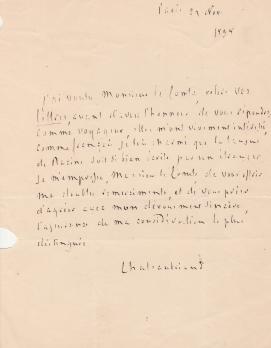 Paris 22 Nov
1834
J'ai voulu Monsieur le Comte, relire vos
lettres, avant d'avoir l'honneur de vous répondre,
Comme voyageur, elles m'ont vivement intéressé,
Comme français j'ai été charmé que la langue
de Racine soit si bien écrite par un étranger
Je m'empresse, Monsieur le Comte de vous offrir
mes doubles remerciements, et de vous prier
d'agréer avec mon dévouement sincère,
l'assurance de ma considération la plus
distinguée
Chateaubriand